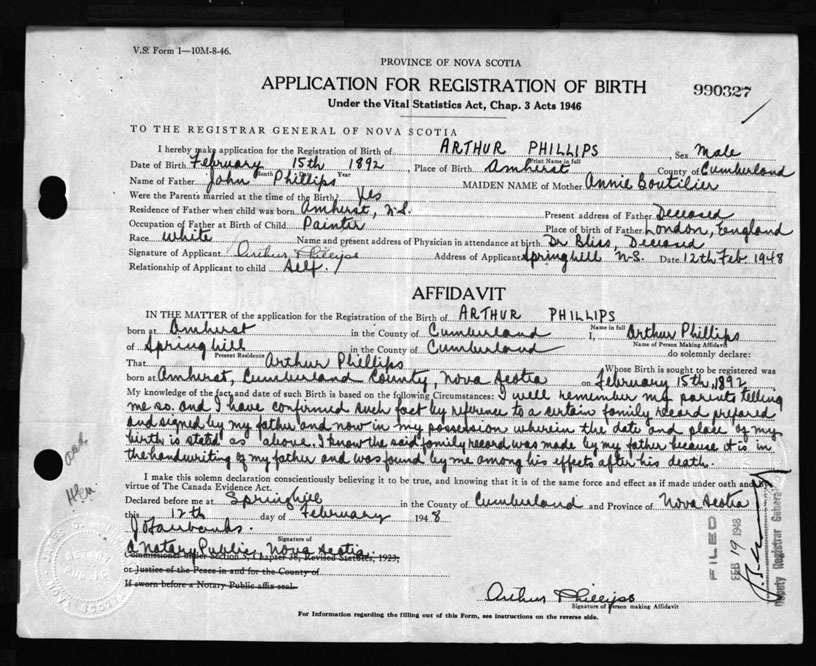 V.S. Form 1—10M-8-46.
PROVINCE OF NOVA SCOTIA
APPLICATION FOR REGISTRATION OF BIRTH
990327
Under the Vital Statistics Act, Chap. 3 Acts 1946
TO THE REGISTRAR GENERAL OF NOVA SCOTIA
I hereby make application for the Registration of Birth of ARTHUR PHILLIPS, Sex Male
Print Name in full
Date of Birth February 15th 1892, Place of Birth Amherst County of Cumberland
Month Year
Name of Father John Phillips MAIDEN NAME of Mother Annie Boutilier
Were the Parents married at the time of the Birth? Yes
Residence of Father when child was born Amherst, N.S. Present address of Father Deceased
Occupation of Father at Birth of Child Painter Place of birth of Father London, England
Race White Name and present address of Physician in attendance at birth Dr Bliss, Deceased
Signature of Applicant Arthur Phillips Address of Applicant Springhill N.S. Date 12th Feb. 1948
Relationship of Applicant to child Self.
AFFIDAVIT
IN THE MATTER of the application for the Registration of the Birth of ARTHUR PHILLIPS
Name in full
born at Amherst in the County of Cumberland I, Arthur Phillips
Name of Person Making Affidavit
of Springhill in the County of Cumberland do solemnly declare:
Present Residence
That Arthur Phillips Whose Birth is sought to be registered was
born at Amherst, Cumberland County, Nova Scotia on February 15th, 1892
My knowledge of the fact and date of such Birth is based on the following Circumstances: I well remember my parents telling
me so. and I have confirmed such fact by reference to a certain family record prepared
and signed by my father and now in my possession wherein the date and place of my
birth is stated as above. I know the said family record was made by my father because it is in
the handwriting of my father and was found by me among his effects after his death.
I make this solemn declaration conscientiously believing it to be true, and knowing that it is of the same force and effect as if made under oath and by
virtue of The Canada Evidence Act.
Declared before me at Springhill in the County of Cumberland and Province of Nova Scotia
this 12th day of February 1948
J O Fairbanks.
Signature of
A Notary Public Nova Scotia
Commissioner under Section 5, Chapter 38, Revised Statutes, 1923,
or Justice of the Peace in and for the County of
If sworn before a Notary Public affix seal.
FILED
FEB 19 1948
Deputy Registrar General
Arthur Phillips
Signature of Person making Affidavit
For Information regarding the filling out of this Form, see instructions on the reverse side.